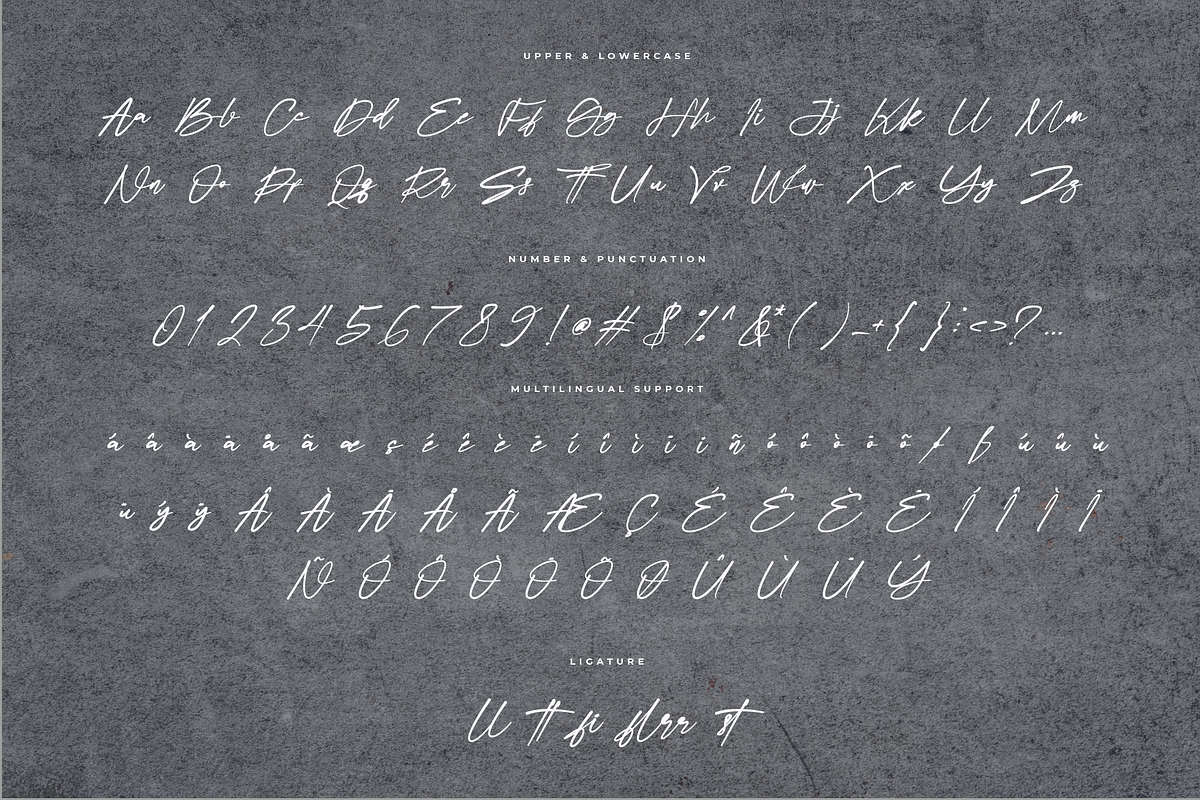 UPPER & LOWERCASE
Aa Bb Cc Dd Ee Ff Gg Hh Ii Jj Kk Ll Mm
Nn Oo Pp Qq Rr Ss Tt Uu Vv Ww Xx Yy Zz
NUMBER & PUNCTUATION
0 1 2 3 4 5 6 7 8 9 ! @ # $ % ^ & * ( ) _ + { } : < > ? ...
MULTILINGUAL SUPPORT
á â à ä å ã æ ç é ê è ë í î ì ï i ñ ó ô ò ö õ ø ß ú û ù
ü ý ÿ Â À Ä Å Ã Æ Ç É Ê È Ë Í Î Ì Ï
Ñ Ó Ô Ò Ö Õ Ø Û Ù Ü Ý
LIGATURE
ll tt fi fl rr st